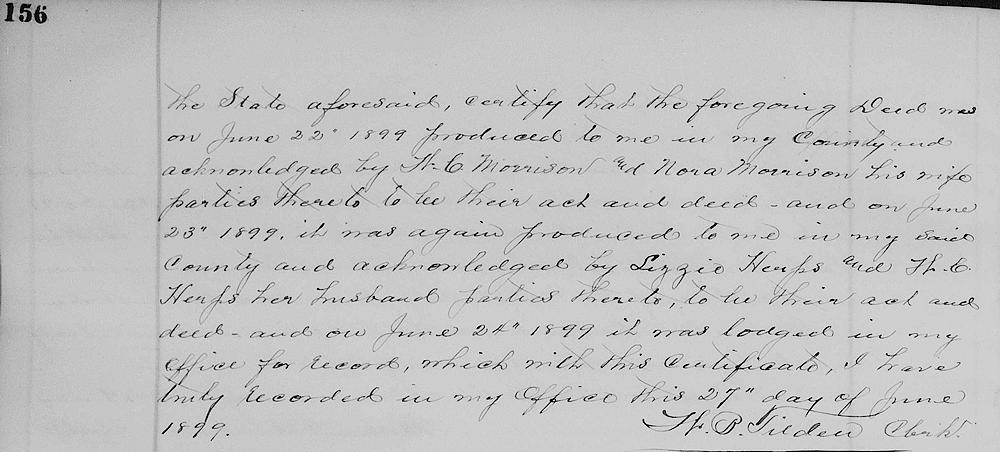 156
the State aforesaid, certify that the foregoing Deed was
on June 22" 1899 produced to me in my County and
acknowledged by W. C. Morrison and Nora Morrison his wife
parties thereto to be their act and deed - and on June
23" 1899, it was again produced to me in my said
County and acknowledged by Lizzie Herps and W. C.
Herps her husband parties thereto, to be their act and
deed - and on June 24" 1899 it was lodged in my
Office for record, which with this Certificate, I have
truly recorded in my Office this 27" day of June
1899. W. P. Tilden Clerk.